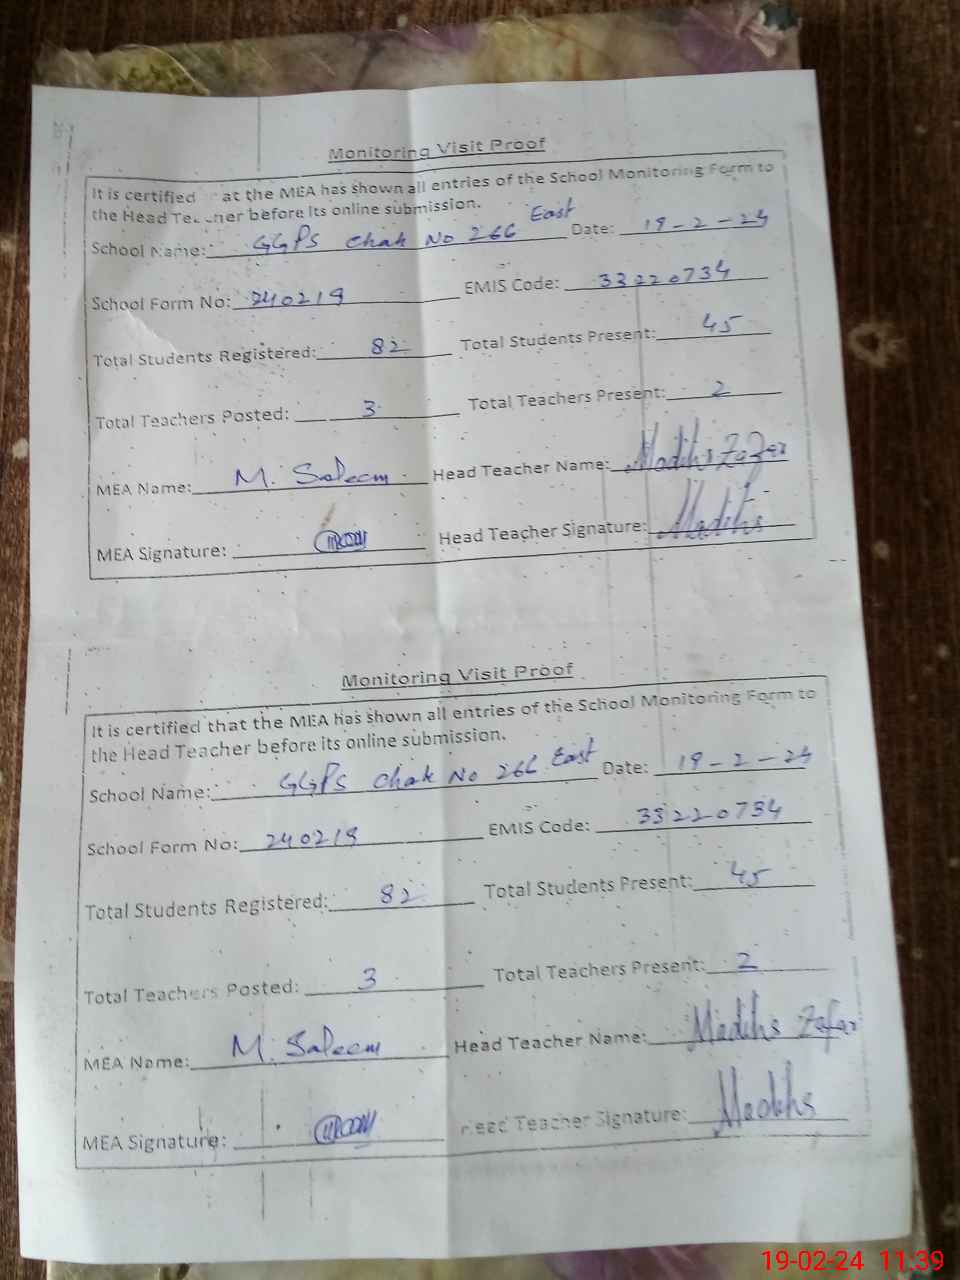 Monitoring Visit Proof
It is certified at the MEA has shown all entries of the School Monitoring Form to
the Head Teacher before its online submission.
School Name: GGPS Chak No 266 East Date: 19-2-24
School Form No: 240219 EMIS Code: 33220734
Total Students Registered: 82 Total Students Present: 45
Total Teachers Posted: 3 Total Teachers Present: 2
MEA Name: M. Saleem Head Teacher Name: Madihs Zafar
MEA Signature: Head Teacher Signature: Madihs
Monitoring Visit Proof
It is certified that the MEA has shown all entries of the School Monitoring Form to
the Head Teacher before its online submission.
School Name: GGPS Chak No 266 East Date: 19-2-24
School Form No: 240219 EMIS Code: 33220734
Total Students Registered: 82 Total Students Present: 45
Total Teachers Posted: 3 Total Teachers Present: 2
MEA Name: M. Saleem Head Teacher Name: Madihs Zafar
MEA Signature: Head Teacher Signature: Madihs
19-02-24 11:39